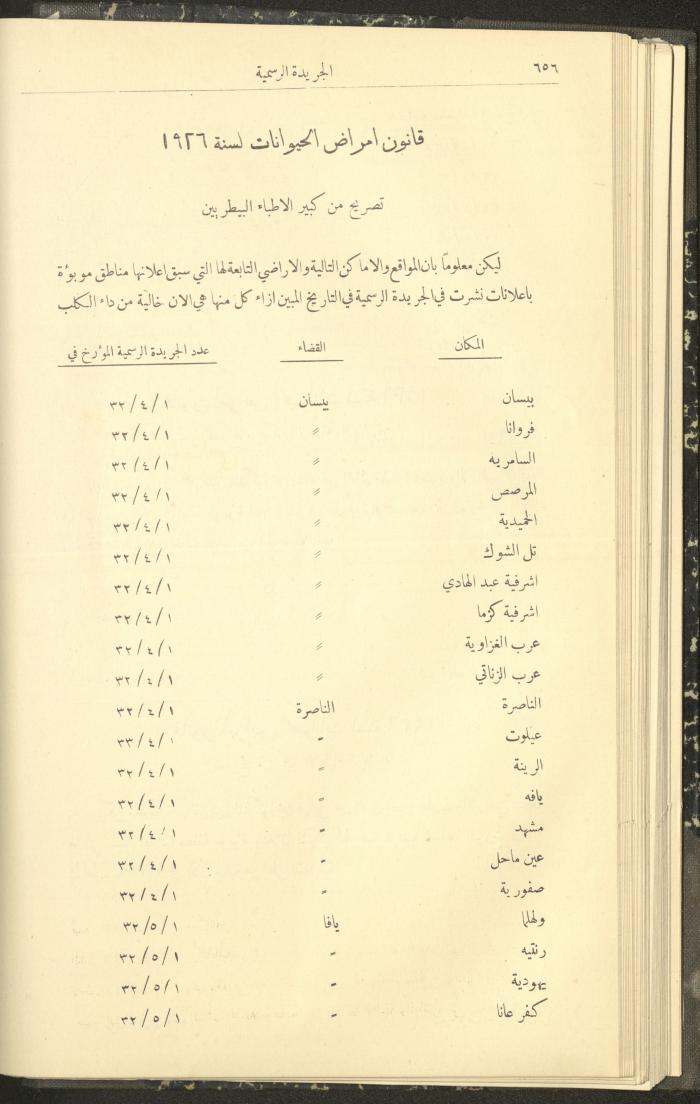 ٦٥٦ الجريدة الرسمية
قانون امراض الحيوانات لسنة ١٩٢٦
تصريح من كبير الاطباء البيطريين
ليكن معلوماً بان المواقع والاماكن التالية والاراضي التابعة لها التي سبق اعلانها مناطق موبوءة
باعلانات نشرت في الجريدة الرسمية في التاريخ المبين ازاء كل منها هي الان خالية من داء الكلب
المكان القضاء عدد الجريدة الرسمية المؤرخ في
بيسان بيسان ٣٢/٤/١
فروانا " ٣٢/٤/١
السامريه " ٣٢/٤/١
المرصص " ٣٢/٤/١
الحميدية " ٣٢/٤/١
تل الشوك " ٣٢/٤/١
اشرفية عبد الهادي " ٣٢/٤/١
اشرفية كزما " ٣٢/٤/١
عرب الغزاوية " ٣٢/٤/١
عرب الزناتي " ٣٢/٤/١
الناصرة الناصرة ٣٢/٤/١
عيلوت " ٣٣/٤/١
الرينة " ٣٢/٤/١
يافه " ٣٢/٤/١
مشهد " ٣٢/٤/١
عين ماحل " ٣٢/٤/١
صفورية " ٣٢/٤/١
ولهلما يافا ٣٢/٥/١
رنتيه " ٣٢/٥/١
يهودية " ٣٢/٥/١
كفر عانا " ٣٢/٥/١